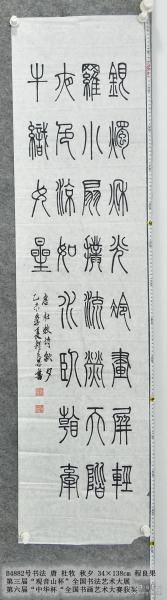 銀燭秋光冷畫屏輕
羅小扇撲流螢天階
夜色涼如水臥看牽
牛織女星
唐杜牧詩秋夕
B4882号书法 唐 杜牧 秋夕 34×138cm 程良果
第三届“观音山杯”全国书法艺术大展
第六届“中华杯”全国书画艺术大赛获奖